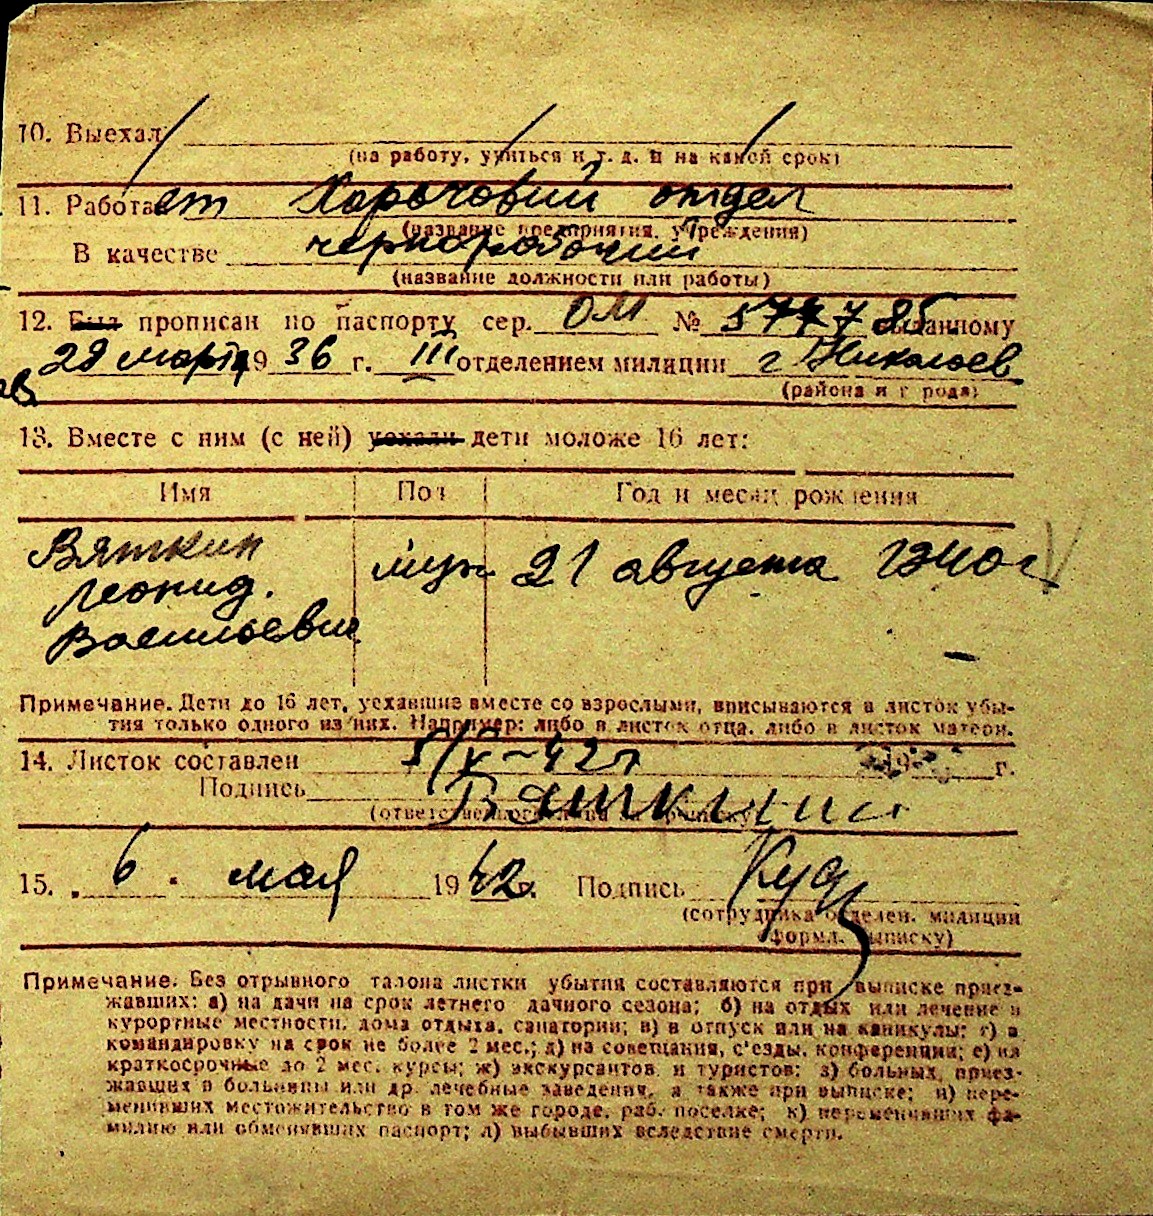 10. Выехал
(на работу, учиться и т. д. и на какой срок)
11. Работает Харьчовий отдел
(название предприятия, учреждения)
В качестве чернорабочий
(название должности или работы)
12. Был прописан по паспорту сер. ОМ № выданному
28 марта 1936 г. III отделением милиции г Николаев
(района и города)
13. Вместе с ним (с ней) уехали дети моложе 16 лет:
Имя Пол Год и месяц рождения
Вяткин муж 21 августа 1940 г
Леонид.
Васильевич
Примечание. Дети до 16 лет, уехавшие вместе со взрослыми, вписываются в листок убы-
тия только одного из них. Например: либо в листок отца, либо в листок матери.
14. Листок составлен 5/V-42г 19 г.
Подпись Вяткина
(ответственного за прописку)
15. „ 6 " мая 1942 г. Подпись
(сотрудника отделен. милиции
формл. выписку)
Примечание. Без отрывного талона листки убытия составляются при выписке приез-
жавших: а) на дачи на срок летнего дачного сезона; б) на отдых или лечение в
курортные местности, дома отдыха, санатории; в) в отпуск или на каникулы; г) в
командировку на срок не более 2 мес.; д) на совещания, с'езды, конференции; е) на
краткосрочные до 2 мес. курсы; ж) экскурсантов и туристов; з) больных, приез-
жавших в больницы или др. лечебные заведения, а также при выписке; и) пере-
менивших местожительство в том же городе, раб. поселке; к) переменивших фа-
милию или обменявших паспорт; л) выбывших вследствие смерти.